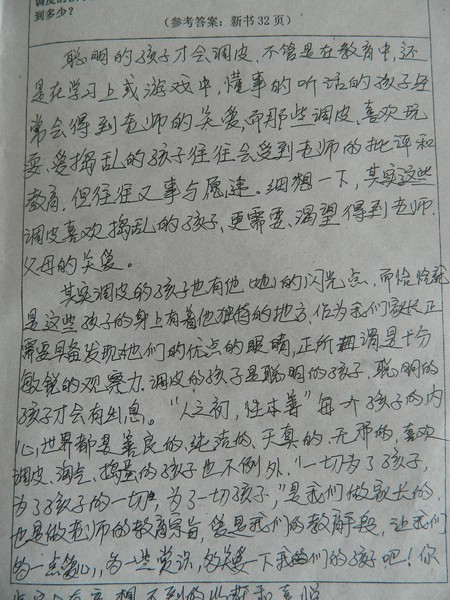 到多少?
(参考答案:新书32页)
聪明的孩子才会调皮,不管是在教育中,还
是在学习上或游戏中,懂事的听话的孩子经
常会得到老师的关爱,而那些调皮、喜欢玩
耍、爱捣乱的孩子往往会受到老师的批评和
教育,但往往又事与愿违。细想一下,其实这些
调皮喜欢捣乱的孩子,更需要、渴望得到老师、
父母的关爱。
其实调皮的孩子也有他(她)的闪光点,而恰恰就
是这些孩子的身上有着他独特的地方,作为我们家长正
需要具备发现他们的优点的眼睛,正所谓是十分
敏锐的观察力。调皮的孩子是聪明的孩子,聪明的
孩子才会有出息。“人之初,性本善”每一个孩子的内
心世界都是善良的、纯洁的、天真的、无邪的,喜欢
调皮、淘气、捣蛋的孩子也不例外。“一切为了孩子,
为了孩子的一切,为了一切孩子,”是我们做家长的,
也是做老师的教育宗旨,爱是我们的教育手段,让我们
多一点爱心,多一些赏识,多关爱一下我们的孩子吧!你